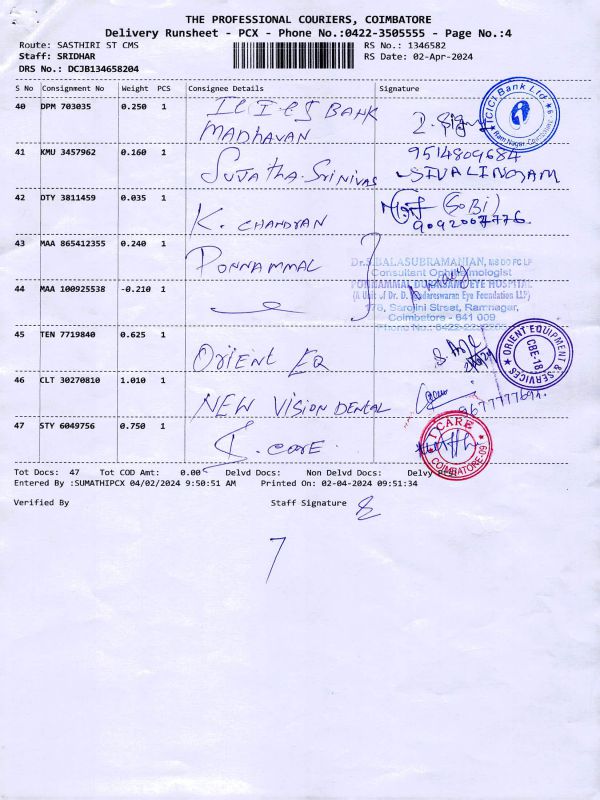 THE PROFESSIONAL COURIERS, COIMBATORE
Delivery Runsheet - PCX - Phone No.:0422-3505555 - Page No.:4
Route: SASTHIRI ST CMS
RS No.: 1346582
Staff: SRIDHAR
RS Date: 02-Apr-2024
DRS No.: DCJB134658204
S No Consignment No Weight PCS Consignee Details Signature
40 DPM 703035 0.250 1 ICICI BANK
MADHAVAN
ICICI Bank Ltd.
Ram Nagar, Coimbatore
41 KMU 3457962 0.160 1 SUJATHA. SRINIVAS
9514809684
SIVALINGAM
42 DTY 3811459 0.035 1 K. CHANDRAN
(GOBI)
9092007776.
43 MAA 865412355 0.240 1 PONNAMMAL
Dr.S.BALASUBRAMANIAN, MS DO FC LF
Consultant Ophthalmologist
44 MAA 100925538 -0.210 1
PONNAMMAL DURASAMY EYE HOSPITAL
(A Unit of Dr. D. Eye Foundation LLP)
178, Sarojini Street, Ramnagar,
Coimbatore - 641 009
45 TEN 7719840 0.625 1 ORIENT EQ
ORIENT EQUIPMENT & SERVICES
CBE-18
46 CLT 30270810 1.010 1 NEW VISION DENTAL
47 STY 6049756 0.750 1 I. CARE
I CARE
COIMBATORE-09
Tot Docs: 47 Tot COD Amt: 0.00 Delvd Docs: Non Delvd Docs:
Entered By :SUMATHIPCX 04/02/2024 9:50:51 AM Printed On: 02-04-2024 09:51:34
Verified By Staff Signature
7